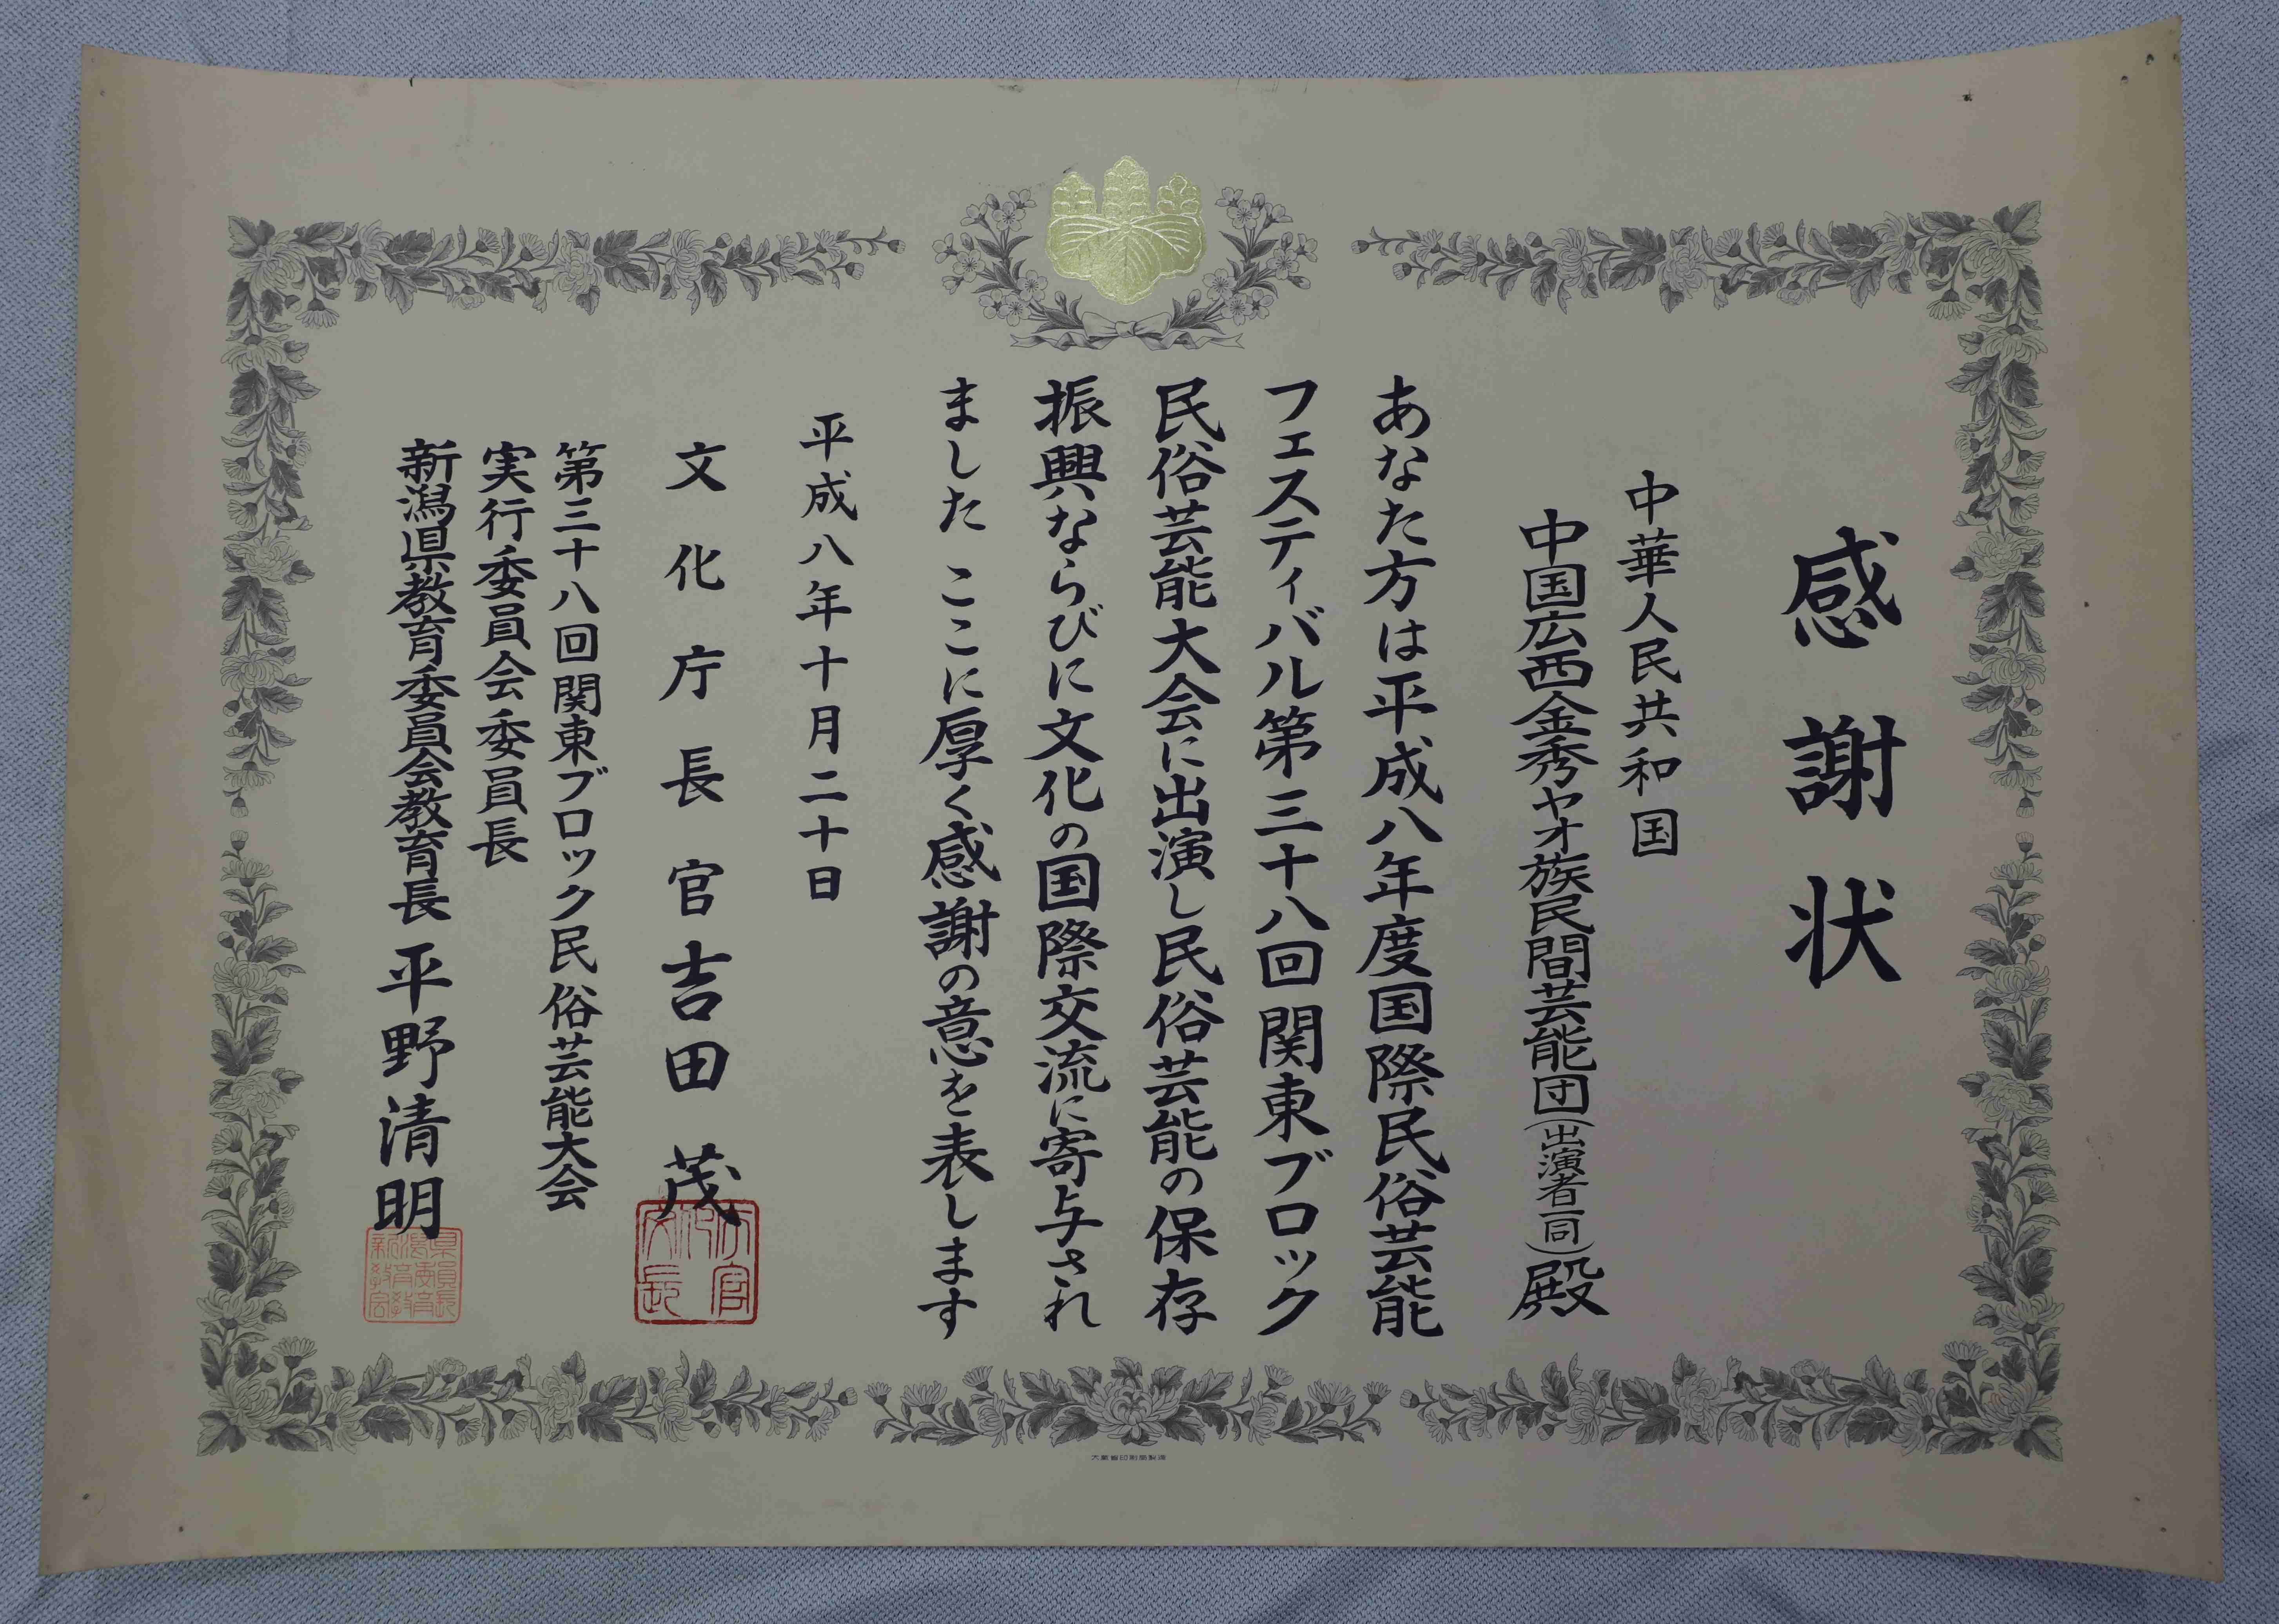 感謝状
中華人民共和国
中国広西金秀ヤオ族民間芸能団(出演者一同)殿
あなた方は平成八年度国際民俗芸能
フェスティバル第三十八回関東ブロック
民俗芸能大会に出演し民俗芸能の保存
振興ならびに文化の国際交流に寄与され
ました ここに厚く感謝の意を表します
平成八年十月二十日
文化庁長官 吉田 茂
第三十八回関東ブロック民俗芸能大会
実行委員会委員長
新潟県教育委員会教育長 平野清明
大蔵省印刷局製造